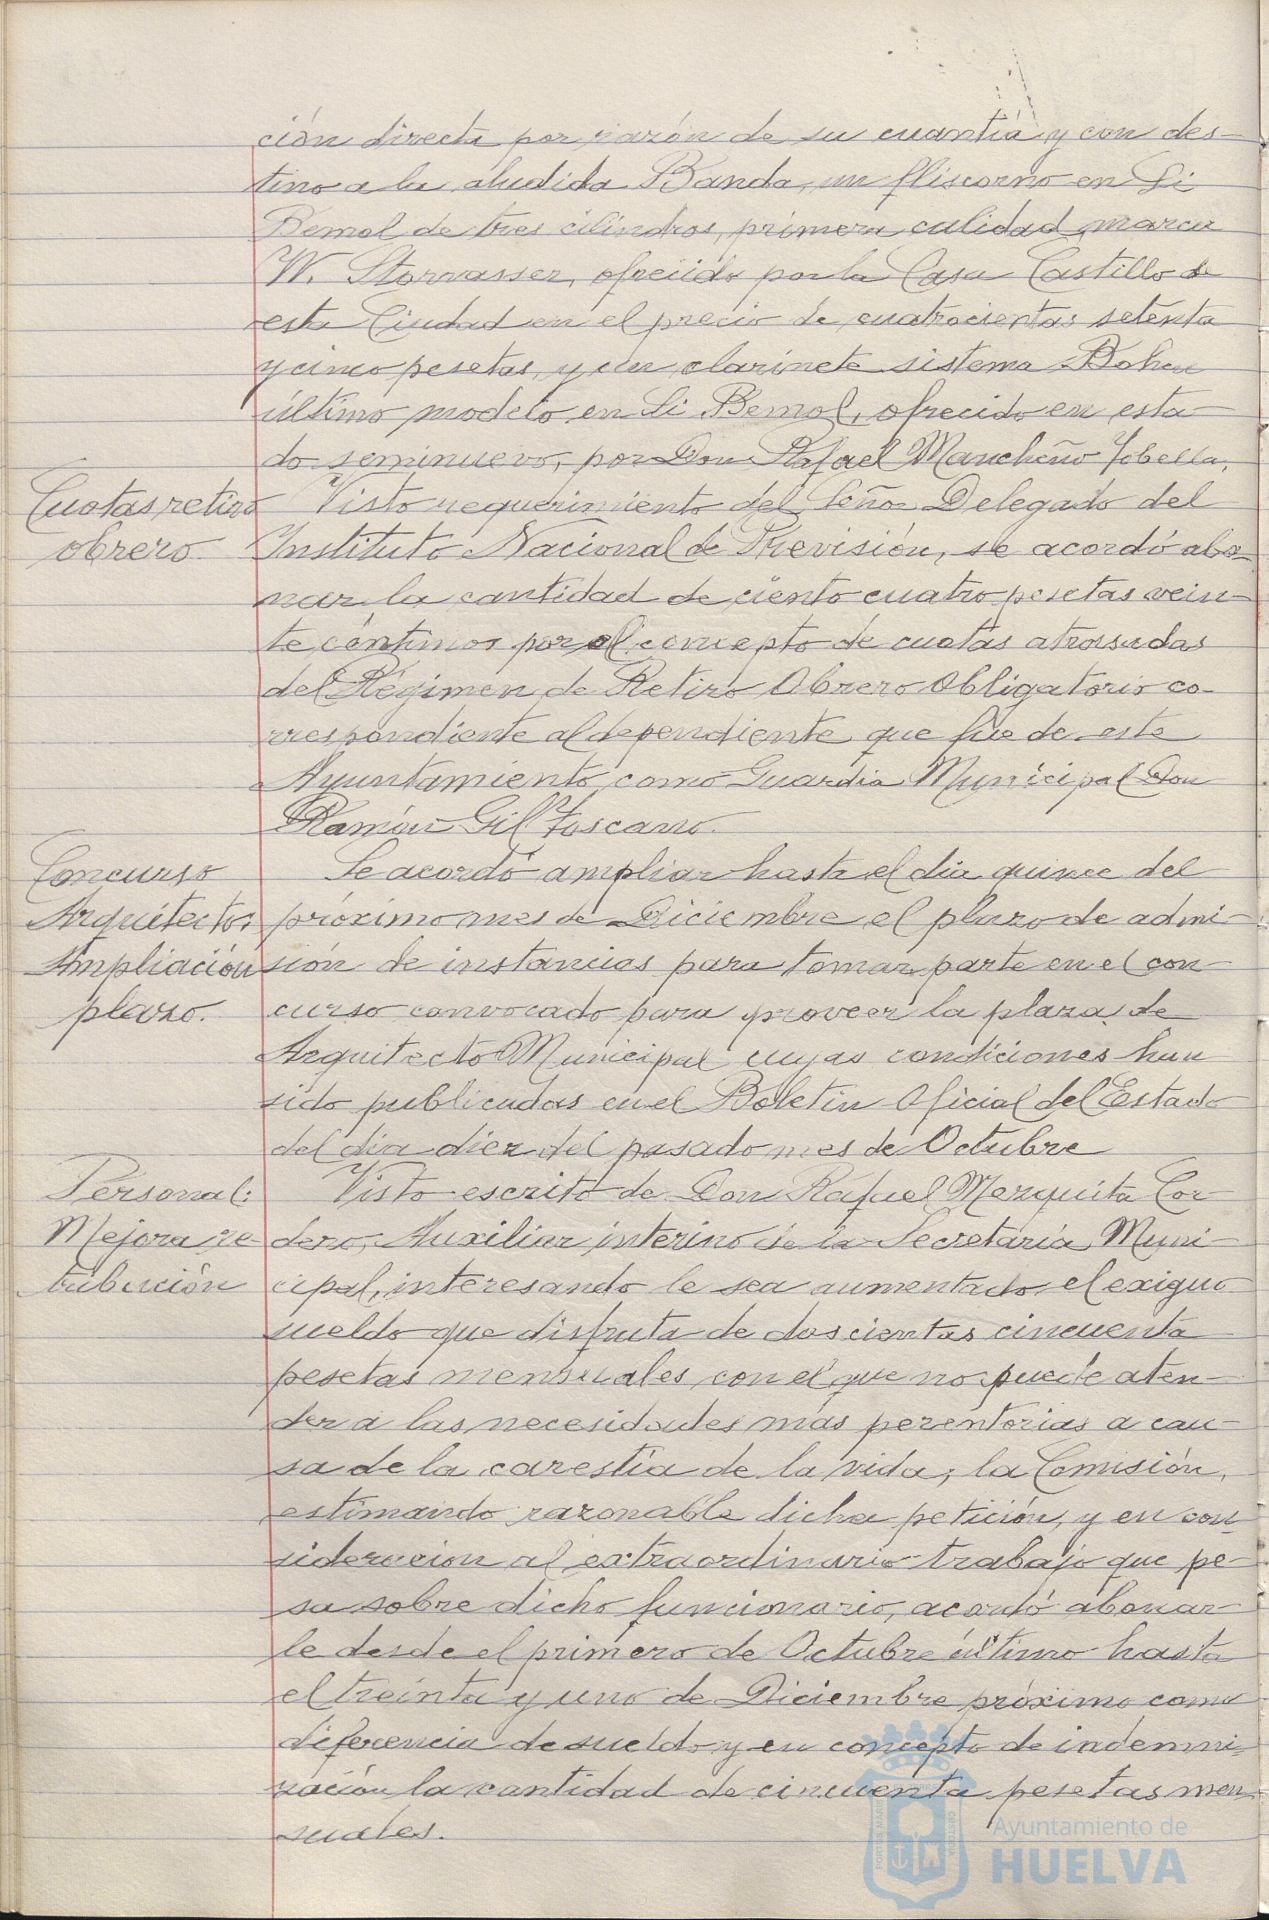 ción directa por razón de su cuantía y con des-
tino a la aludida Banda, un fliscorno en Si
Bemol de tres cilindros, primera calidad, marca
W. Storvasser, ofrecido por la Casa Castillo de
esta Ciudad en el precio de cuatrocientas setenta
y cinco pesetas, y un clarinete sistema
último modelo en Si Bemol, ofrecido en esta-
do seminuevo, por Don Rafael Mancheño
Cuotas retiro
obrero.
Visto requerimiento del Señor Delegado del
Instituto Nacional de Previsión, se acordó abo-
nar la cantidad de ciento cuatro pesetas vein-
te céntimos por el concepto de cuotas atrasadas
del Régimen de Retiro Obrero Obligatorio co-
rrespondiente al dependiente que fue de este
Ayuntamiento como Guardia Municipal Don
Ramón Gil Toscano.
Concurso
Arquitecto:
Ampliación
plazo.
Se acordó ampliar hasta el día quince del
próximo mes de Diciembre el plazo de admi-
sión de instancias para tomar parte en el con-
curso convocado para proveer la plaza de
Arquitecto Municipal cuyas condiciones han
sido publicadas en el Boletín Oficial del Estado
del día diez del pasado mes de Octubre
Personal:
Mejora re-
tribución
Visto escrito de Don Rafael Merquita Cor-
dero, Auxiliar interino de la Secretaría Muni-
cipal, interesando le sea aumentado el exiguo
sueldo que disfruta de doscientas cincuenta
pesetas mensuales con el que no puede aten-
der a las necesidades más perentorias a cau-
sa de la carestía de la vida; la Comisión,
estimando razonable dicha petición, y en con-
sideración al extraordinario trabajo que pe-
sa sobre dicho funcionario, acordó abonar-
le desde el primero de Octubre último hasta
el treinta y uno de Diciembre próximo como
diferencia de sueldo y en concepto de indemni-
zación la cantidad de cincuenta pesetas men-
suales.
Ayuntamiento de
HUELVA